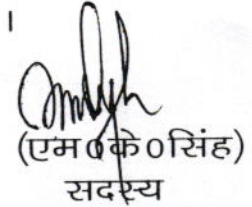 ।
(एम०के०सिंह)
सदस्य